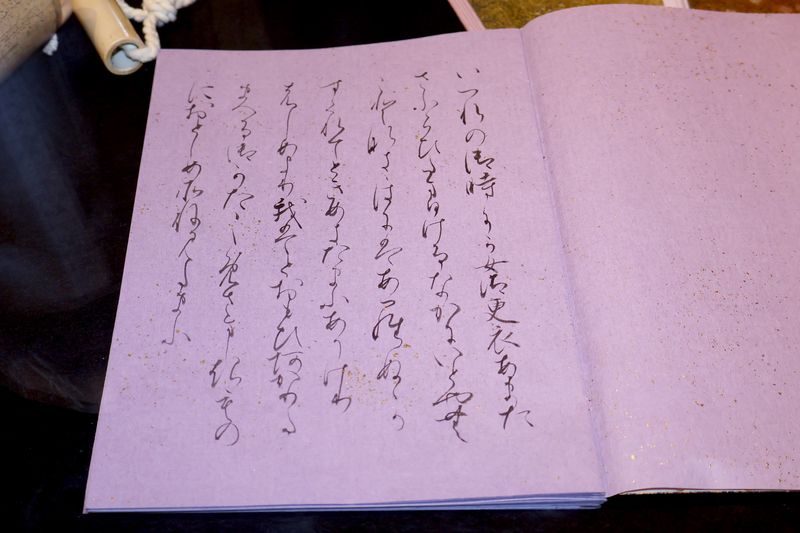 いつれの御時にか女御更衣あまた
さふらひ玉ひけるなかにいとやむ
ことなききはにはあらぬか
すくれてときめきたまふありけり
はしめより我はとおもひあかりた
まへる御かた〱めさましきもの
におとしめそねみたまふ